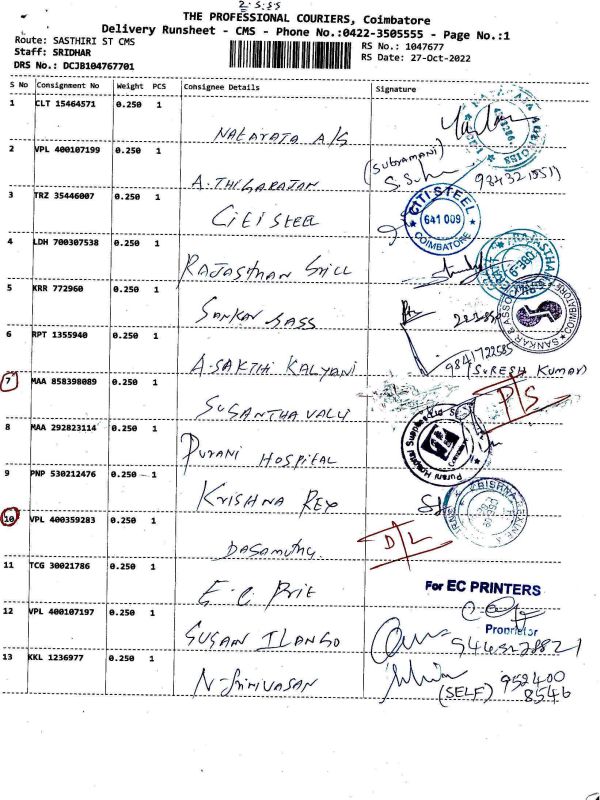 2:5:55
THE PROFESSIONAL COURIERS, Coimbatore
Delivery Runsheet - CMS - Phone No.:0422-3505555 - Page No.:1
Route: SASTHIRI ST CMS
RS No.: 1047677
Staff: SRIDHAR
RS Date: 27-Oct-2022
DRS No.: DCJB104767701
S No Consignment No Weight PCS Consignee Details Signature
1 CLT 15464571 0.250 1
NATARATA A/G
2 VPL 400107199 0.250 1 (SUBRAMANI)
A.THIGARAJAN
3 TRZ 35446007 0.250 1
CITI STEEL
CITI STEEL
641 009
COIMBATORE
4 LDH 700307538 0.250 1
RAJASTHAN GRILL
5 KRR 772960 0.250 1
SANKAR & ASSOCIATES
COIMBATORE
SANKAR ASSS
6 RPT 1355940 0.250 1
A.SAKTHI KALYANI
9841722585
(SURESH KUMAR)
7 MAA 858398089 0.250 1
P/S
SUGANTHAVALLI
8 MAA 292823114 0.250 1
PURANI HOSPITAL
Purani Hospital Supplies
9 PNP 530212476 0.250 1
KRISHNA REX
10 VPL 400359283 0.250 1
D/L
11 TCG 30021786 0.250 1
For EC PRINTERS
E.C. PRIE
12 VPL 400107197 0.250 1
Proprietor
SUGAN ILANGO
13 KKL 1236977 0.250 1
N-SRINIVASAN
(SELF) 952400
8546